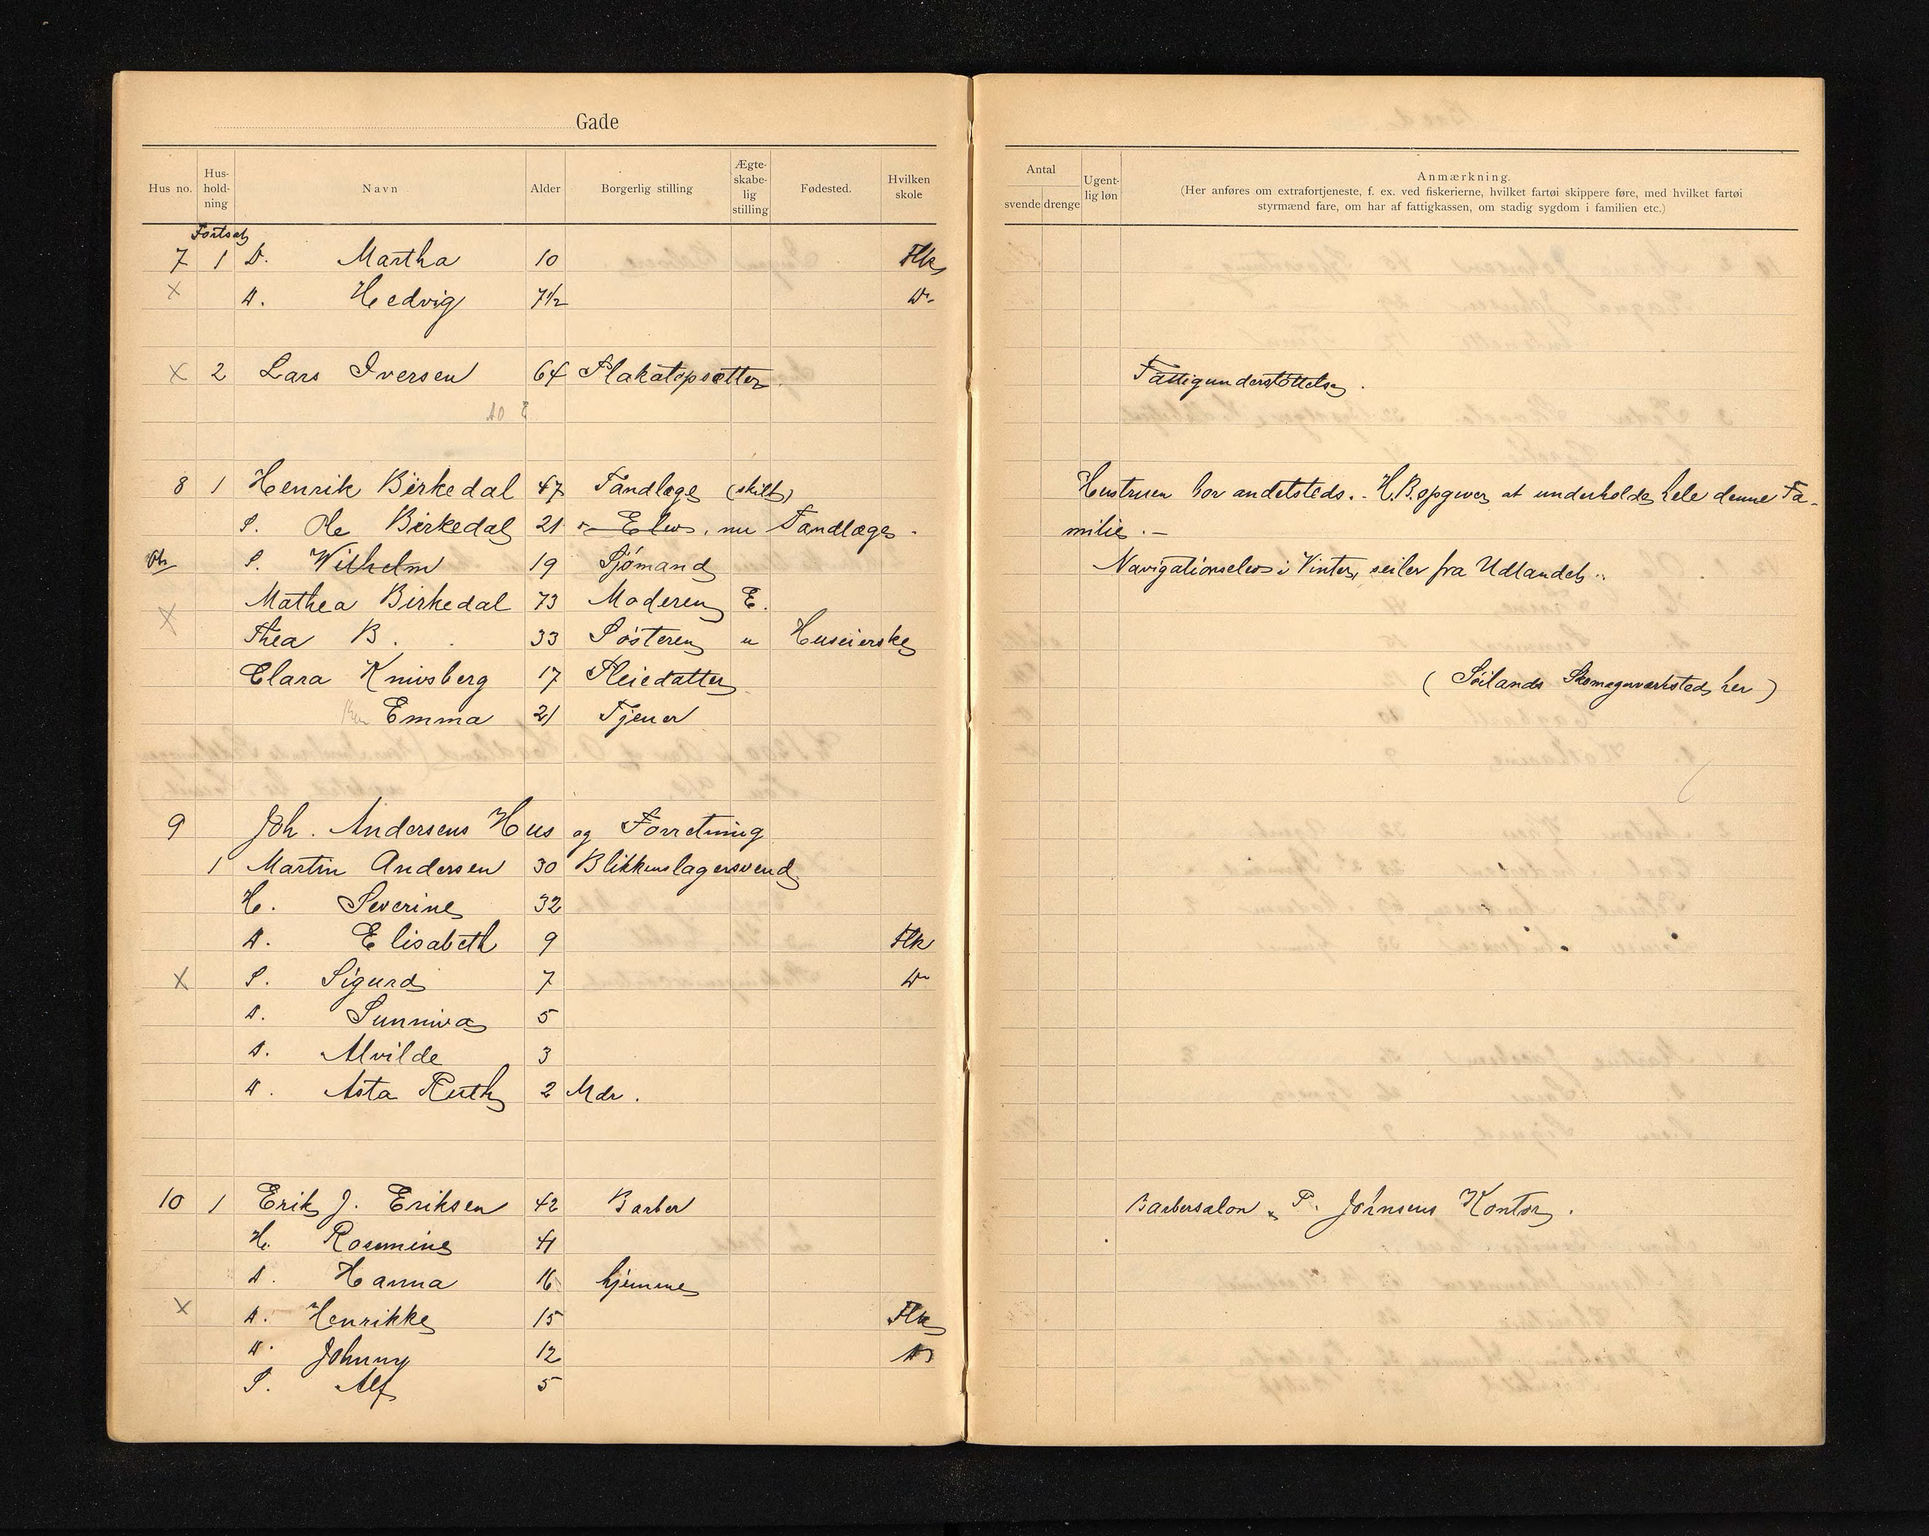 Gade
Hus no. Hus-hold-ning Navn Alder Borgerlig stilling Ægte-skabe-lig stilling Fødested. Hvilken skole
Antal svende drenge Ugent-lig løn Anmærkning.
(Her anføres om extrafortjeneste, f. ex. ved fiskerierne, hvilket fartøi skippere føre, med hvilket fartøi
styrmænd fare, om har af fattigkassen, om stadig sygdom i familien etc.)
Fortsat
7 1 D. Martha 10 Flk
X D. Hedvig 7 1/2 Do
X 2 Lars Iversen 64 Plakatopsætter. Fattigunderstøttelse.
8 1 Henrik Birkedal 47 Tandlæge (skilt) Hustruen bor andetsteds. H.B. opgiver at underholde hele denne Fa-
S. Ole Birkedal 21 Elev, nu Tandlæge. milie. —
S. Wilhelm 19 Sjømand Navigationselev i Vinter, seiler fra Udlandet.
Mathea Birkedal 73 Moderen E.
X Thea B. 33 Søsteren " Huseierske
Clara Knivsberg 17 Pleiedatter (Søilands Skomagerværksted her)
Emma 21 Tjener
9 Joh. Andersens Hus og Forretning
1 Martin Andersen 30 Blikkenslagersvend
H. Severine 32
D. Elisabeth 9 Flk
X S. Sigurd 7 Do
D. Sunniva 5
D. Alvilde 3
D. Asta Ruth 2 Mdr.
10 1 Erik J. Eriksen 42 Barber Barbersalon & P. Jörnsens Kontor.
H. Rosemine 41
D. Hanna 16 hjemme
X D. Henrikke 15 Flk
D. Johnny 12 Do
S. Alf 5